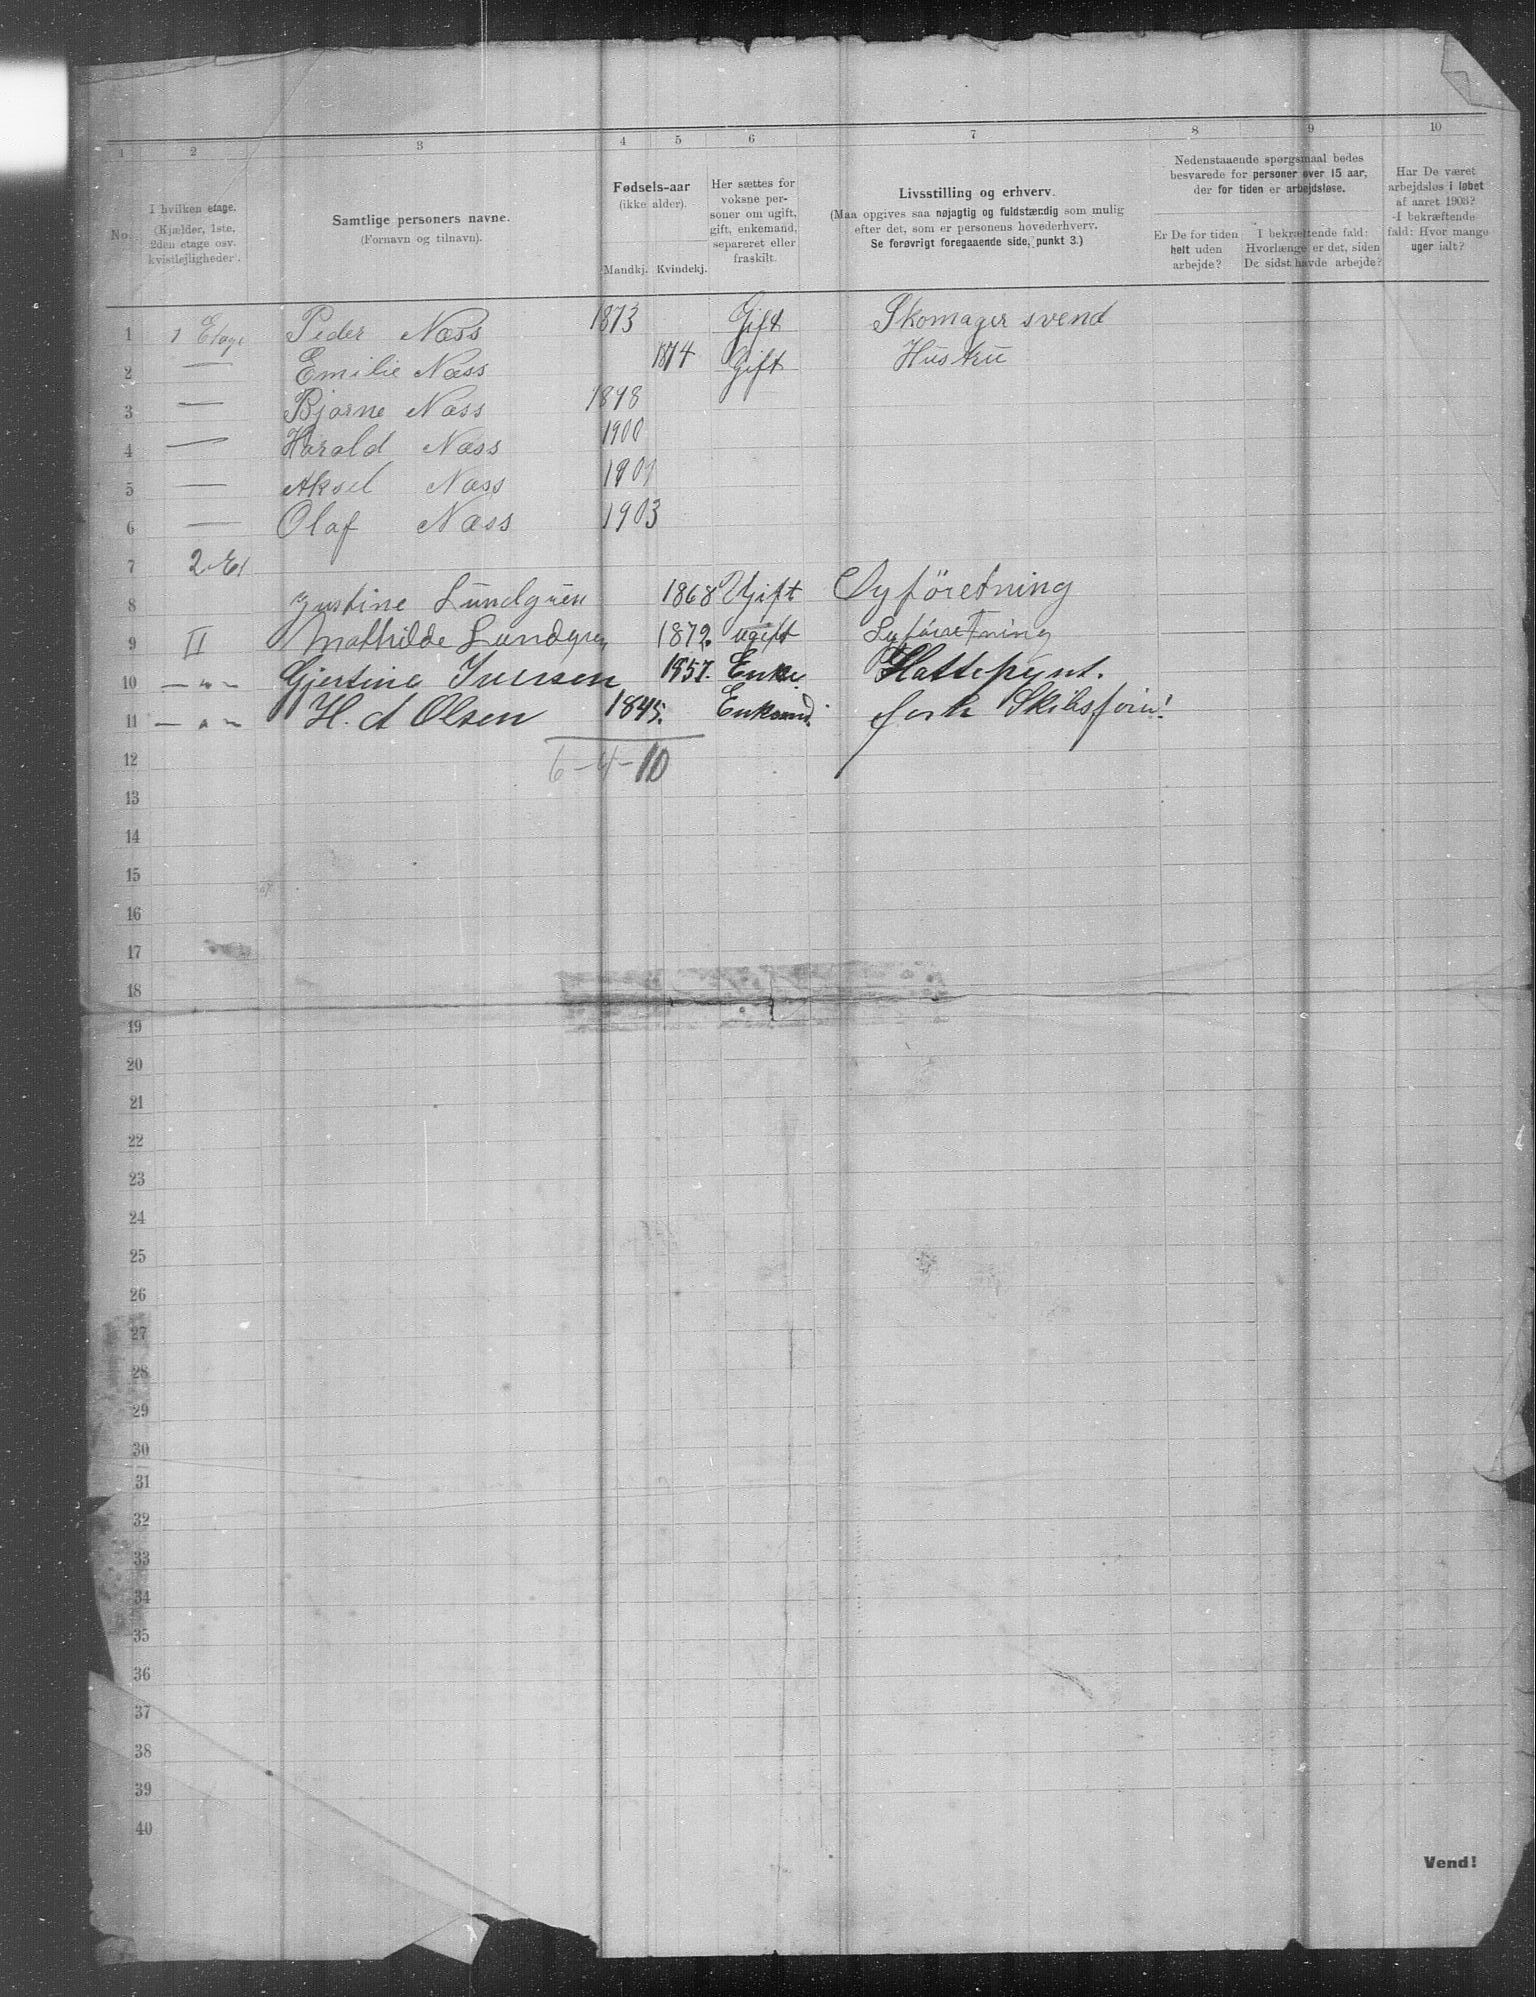 1 2 3 4 5 6 7 8 9 10
No.
I hvilken etage.
(Kjælder, 1ste,
2den etage osv.
kvistlejligheder).
Samtlige personers navne.
(Fornavn og tilnavn).
Fødsels-aar
(ikke alder).
Mandkj. Kvindekj.
Her sættes for
voksne per-
soner om ugift,
gift, enkemand,
separeret eller
fraskilt.
Livsstilling og erhverv.
(Maa opgives saa nøjagtig og fuldstændig som mulig
efter det, som er personens hovederhverv.
Se forøvrigt foregaaende side, punkt 3.)
Nedenstaaende spørgsmaal bedes
besvarede for personer over 15 aar,
der for tiden er arbejdsløse.
Er De for tiden
helt uden
arbejde?
I bekræftende fald:
Hvorlænge er det, siden
De sidst havde arbejde?
Har De været
arbejdsløs i løbet
af aaret 1908?
I bekræftende
fald: Hvor mange
uger ialt?
1 1 Etage Peder Næss 1873 Gift Skomager svend
2 — Emilie Næss 1874 Gift Hustru
3 — Bjarne Næss 1898
4 — Harald Næss 1900
5 — Aksel Næss 1901
6 — Olaf Næss 1903
7 2 Et
8 Justine Lundgren 1868 Ugift Syforetning
9 II Mathilde Lundgren 1872. ugift Syforretning
10 — " — Gjertine Iversen 1857. Enke. Hattepynt.
11 — " — H. A Olsen 1845. Enkemd. forh Skibsfører!
12 6 - 4 - 10
13
14
15
16
17
18
19
20
21
22
23
24
25
26
27
28
29
30
31
32
33
34
35
36
37
38
39
40
Vend!